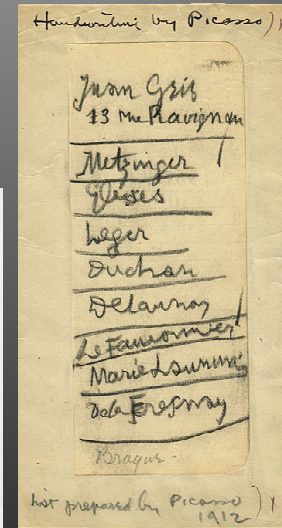 Handwriting by Picasso)
Juan Gris
13 rue Ravignan
Metzinger
Gleises
Leger
Duchan
Delaunay
Le Fauconnier
Marie Laurencin
De la Fresnay
Braque
List prepared by Picasso)
1912